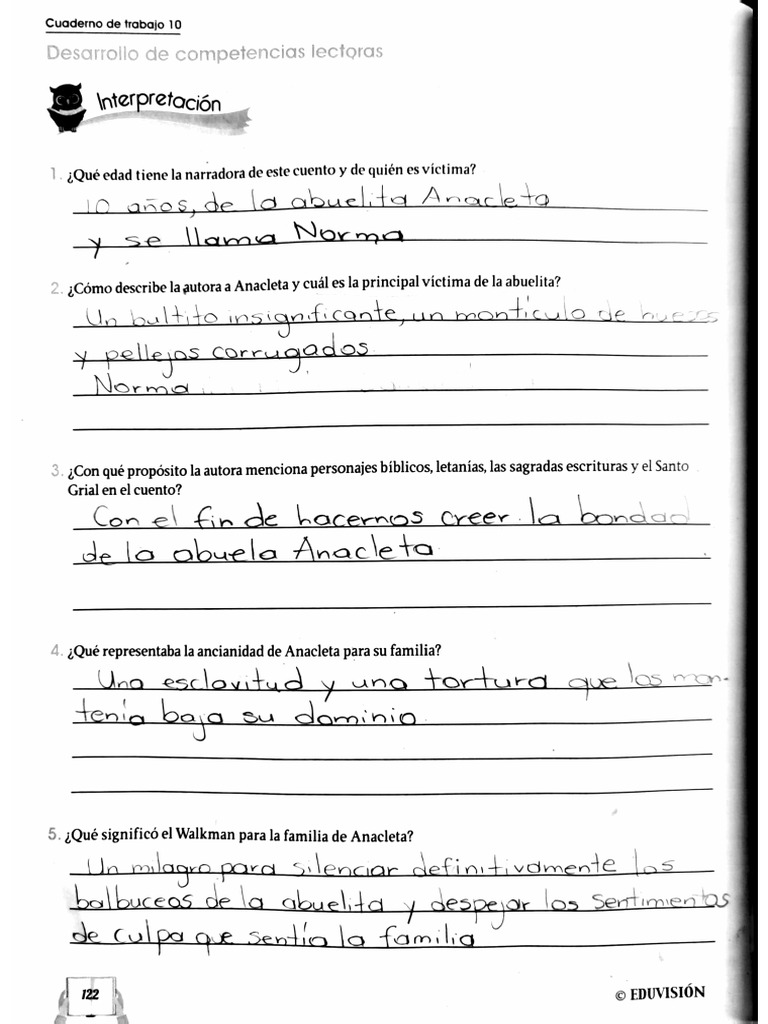 Cuaderno de trabajo 10
Desarrollo de competencias lectoras
Interpretación
1. ¿Qué edad tiene la narradora de este cuento y de quién es víctima?
10 años, de la abuelita Anacleta
y se llama Norma
2. ¿Cómo describe la autora a Anacleta y cuál es la principal víctima de la abuelita?
Un bultito insignificante, un montículo de huesos
y pellejos corrugados
Norma
3. ¿Con qué propósito la autora menciona personajes bíblicos, letanías, las sagradas escrituras y el Santo
Grial en el cuento?
Con el fin de hacernos creer la bondad
de la abuela Anacleta
4. ¿Qué representaba la ancianidad de Anacleta para su familia?
Una esclavitud y una tortura que los man-
tenía bajo su dominio
5. ¿Qué significó el Walkman para la familia de Anacleta?
Un milagro para silenciar definitivamente los
balbuceos de la abuelita y despejar los sentimientos
de culpa que sentía la familia
122
© EDUVISIÓN